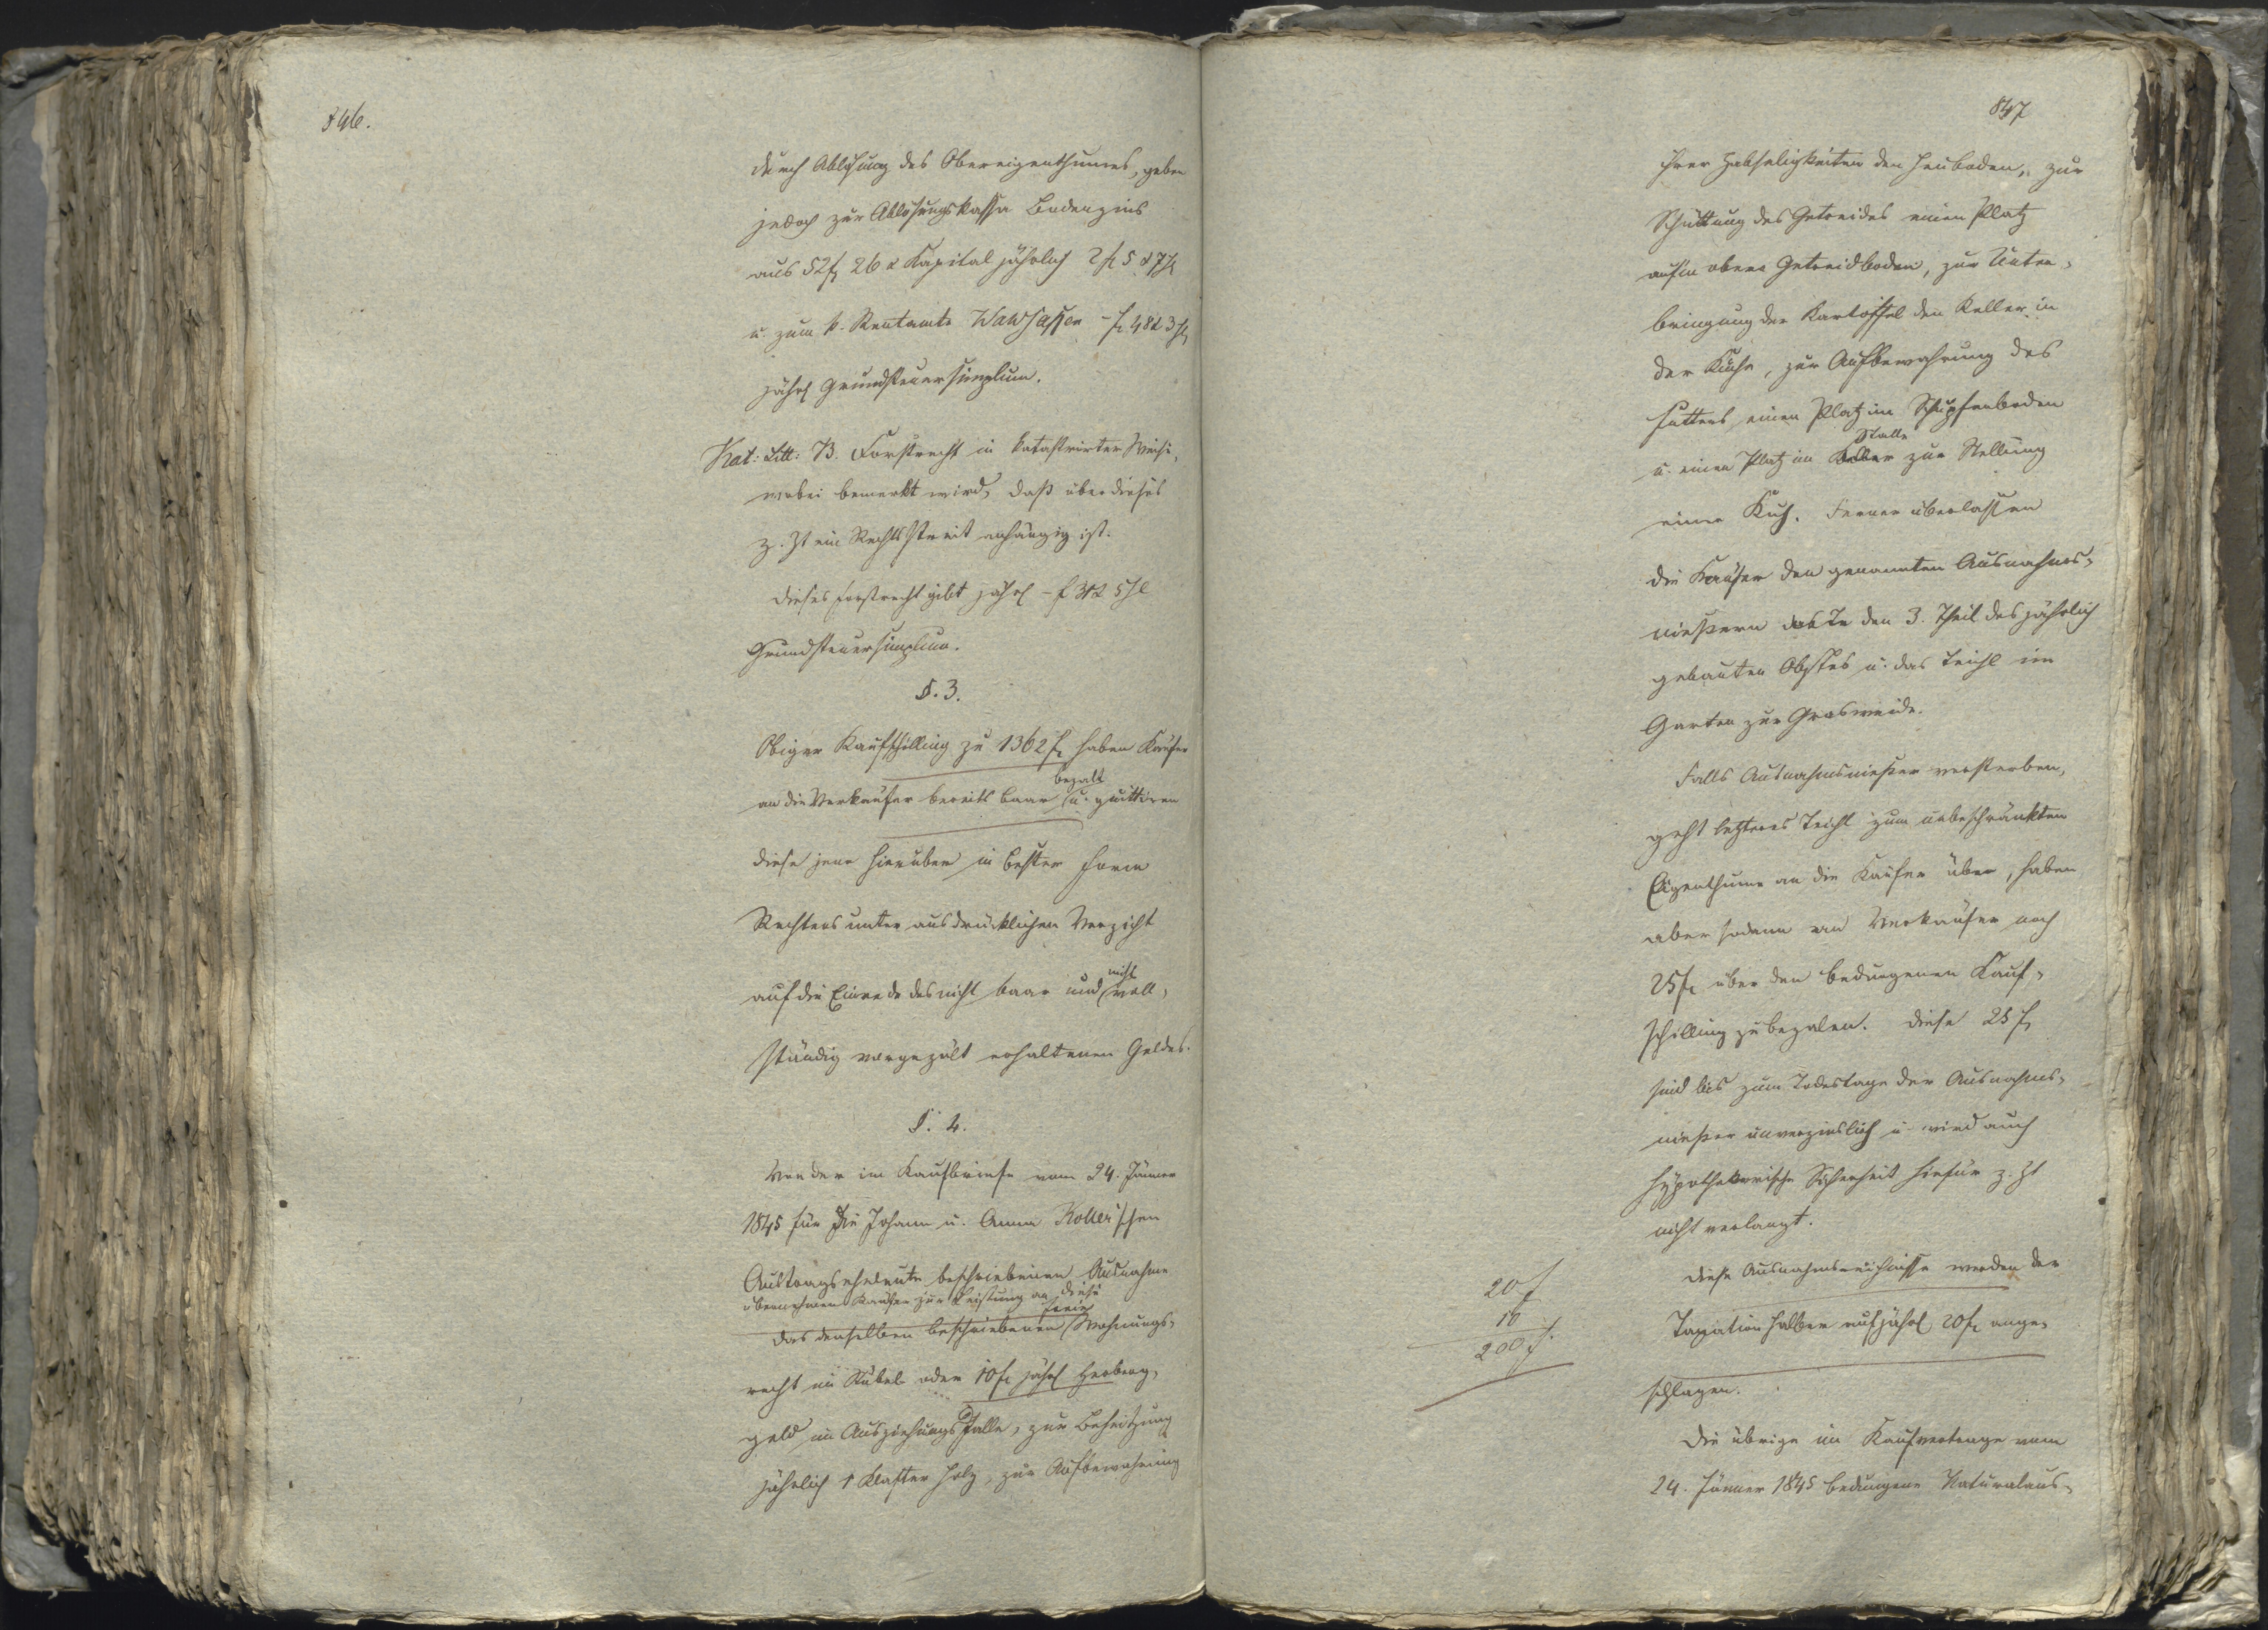 846.
durch Ablösung des Obereigenthumes, geben
jedoch zur Ablösungskassa Bodenzins
aus 52 f 26 x Kapital jährlich 2 f 5 x 7 hl
u. zum k. Rentamte Waldsassen – f 48 x 3 hl
jährl Grundsteuersimplum.
Kat: Litt: B. Forstrecht in katastrirter Weise,
wobei bemerkt wird, daß über dieses
z. Zt ein Rechtsstreit anhängig ist.
Dieses Forstrecht gibt jährl – f x 5 hl
Grundsteuersimplum.
§. 3.
Obigen Kaufschilling zu 1362 f haben Käufer
an die Verkäufer bereits baar bezalt u. quittiren
diese jene hierüber in bester Form
Rechtens unter ausdrücklichen Verzicht
auf die Einrede des nicht baar und nicht voll,
ständig vorgezält erhaltenen Geldes.
§. 4.
Von der im Kaufbriefe vom 24. Jänner
1845 für die Johann u. Anna Roller'schen
Austragseheleute beschriebenen Ausnahme
übernehmen Käufer zur Leistung an diese
das denselben beschriebene freie Wohnungs,
recht im Stübel oder 10 f jährl Herberg,
geld im Ausziehungsfalle, zur Beheitzung
jährlich 1 Klafter Holz, zur Aufbewahrung
847
ihrer Habseligkeiten den Heuboden, zur
Schüttung des Getreides einen Platz
auf'm obern Getreidboden, zur Unter,
bringung der Kartoffel den Keller in
der Küche, zur Aufbewahrung des
Futters einen Platz im Schupfenboden
u. einen Platz im Stalle zur Stellung
einer Kuh. Ferner überlassen
die Käufer den genannten Ausnahms,
nießern den 3. Theil des jährlich
gebauten Obstes u. das Teichl im
Garten zur Grasweide.
Falls Ausnahmsnießer versterben,
geht letzteres Teichl zum unbeschränkten
Eigenthume an die Käufer über, haben
aber sodann an Verkäufer noch
25 f über den bedungenen Kauf,
schilling zu bezalen. Diese 25 f
sind bis zum Todestage der Ausnahms,
nießer unverzinslich u. wird auch
hypothekarische Sicherheit hiefür z. Zt
nicht verlangt.
Diese Ausnahmsreichnisse werden der
Taxation halber auf jährl 20 f ange,
schlagen.
20 f
10
200 f.
Die übrige im Kaufvertrage vom
24. Jänner 1845 bedungene Naturalaus,